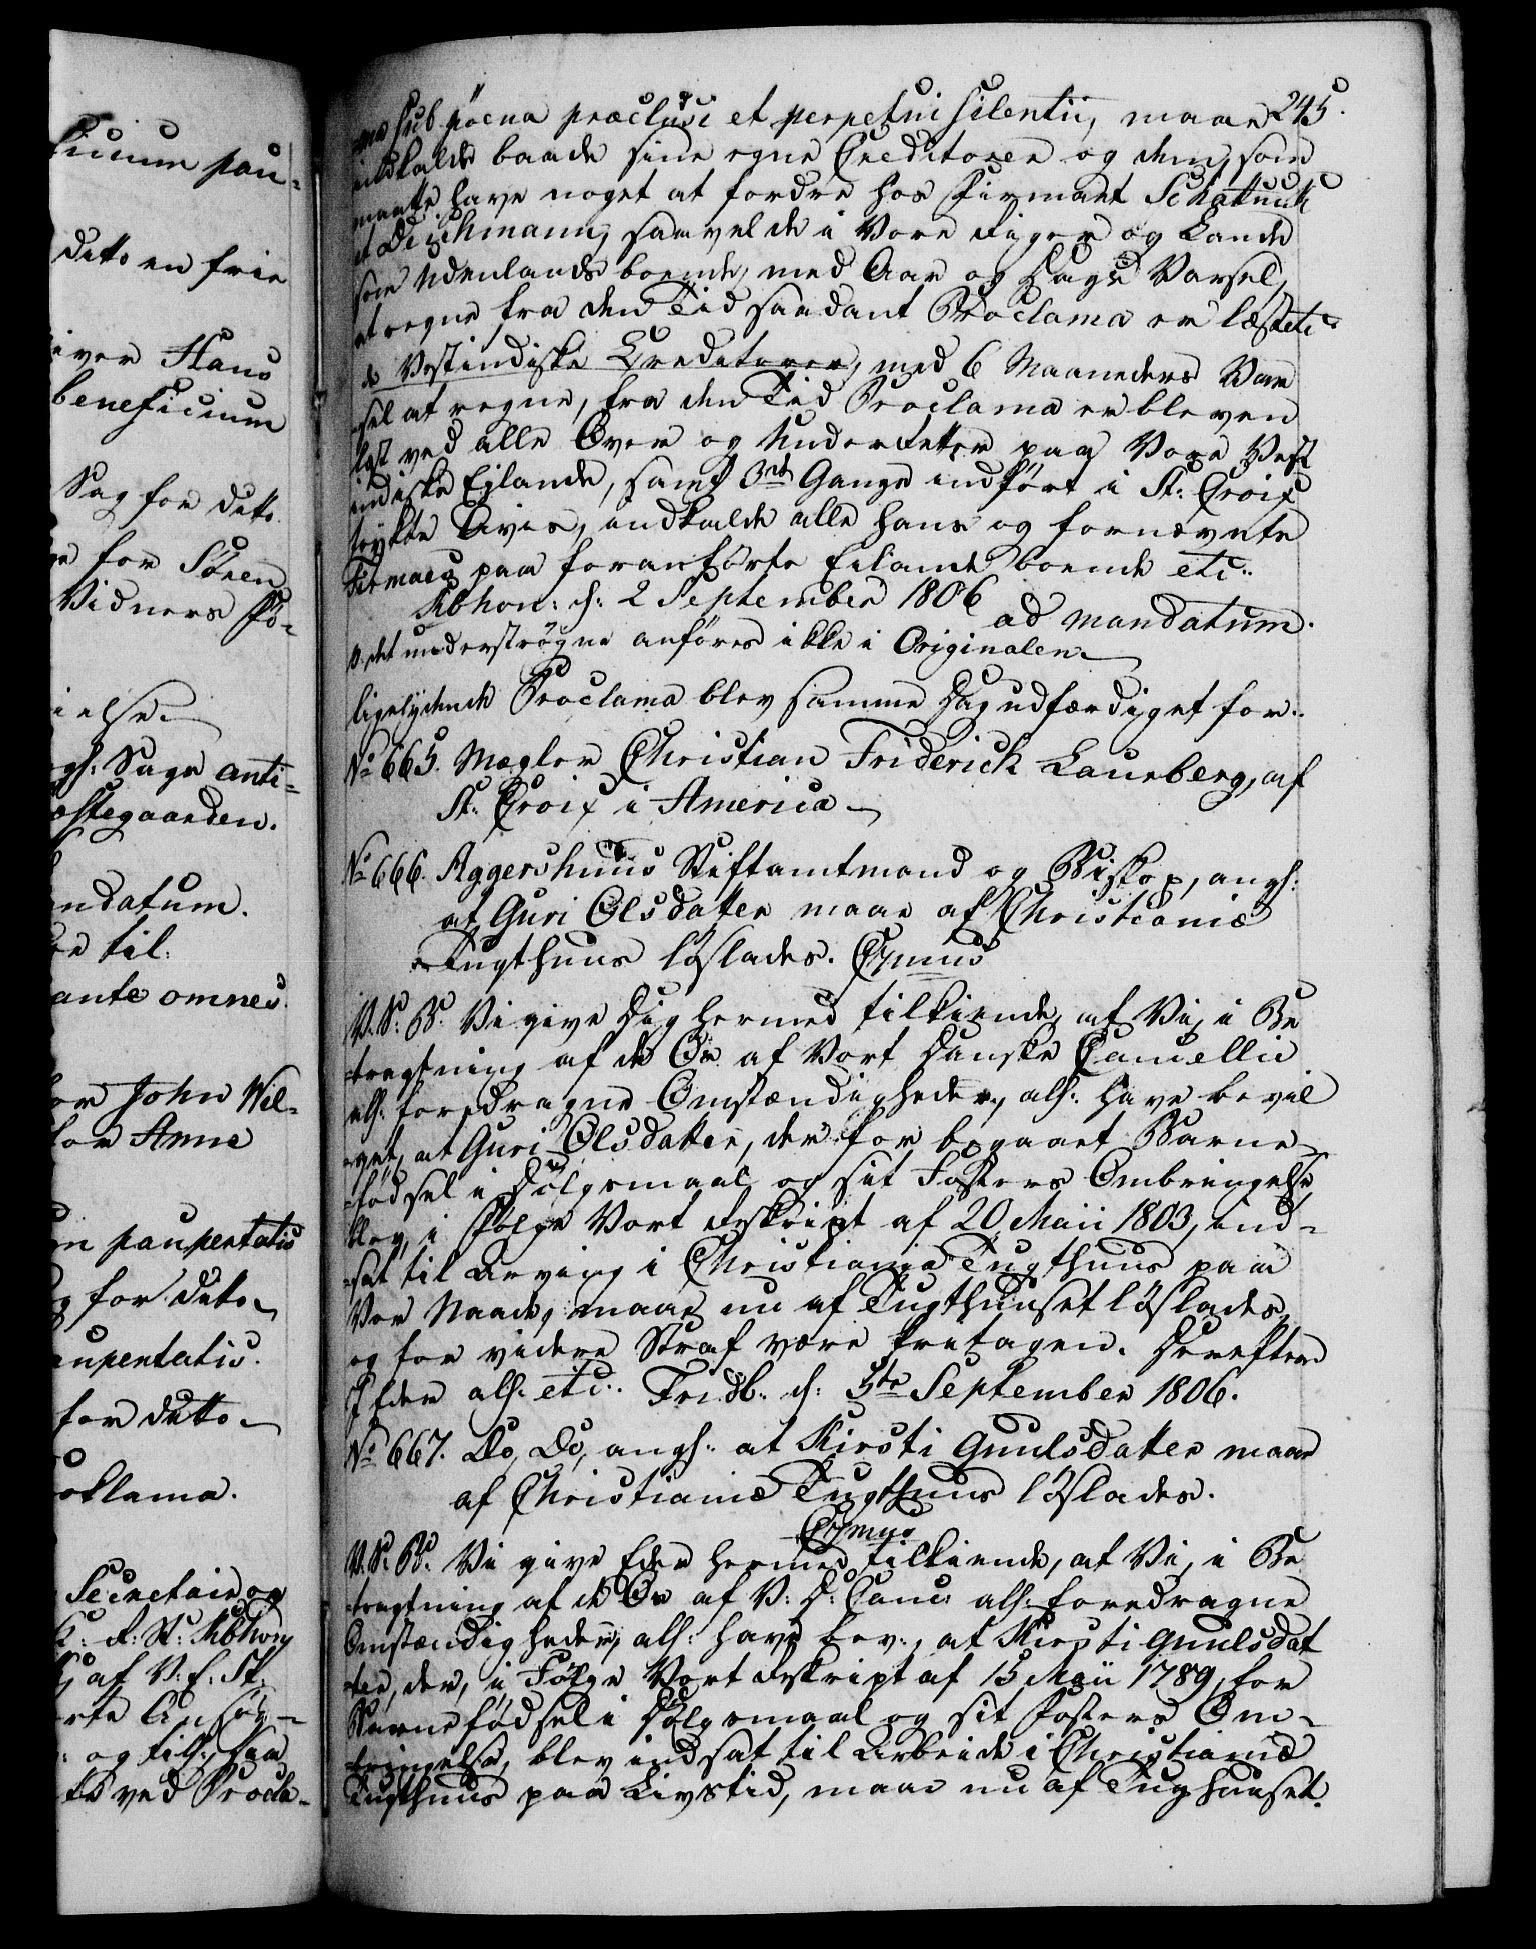 ticium pau-
ditto en frie
iver Hans
beneficium
Sag for ditto.
for Sören
Vidners Fö-
ielse
Sags anti-
æstegaarden.
andatum.
til:
ante omnes.
for John Wil-
for Anne
paupertatis
for ditto
aupertatis.
for ditto
oklama.
Secretair og
Kbhavn
af V: f: St:
Ansög-
og tilh:
ved Procla-
245.
-ma sub poena præclusi et perpetui silentii, maae
indkalde baade sine egne Creditorer og dem, som
maatte have noget at fordre hos Firmaet Schattuck
et Deichmann, saavel de i Vore Riger og Lande
som Udenlands boende, med Aar og Dags Varsel,
at regne fra den Tid saadant Proclama er læst etc:
de Vestindiske Creditorer, med 6 Maaneders Var
-sel at regne, fra den Tid Proclama er bleven
læst ved alle Over og Underretter paa Vore Vest
indiske Eylande, samt 3de Gange indfört i St: Croix
trykte Avis, indkalde alle hans og fornævnte
Firmaes paa foranförte Eilande boende etc:
Kbhvn: d: 2 September 1806
ad mandatum.
det underströgne anföres ikke i Originalen
Ligelydende Proclama blev samme Dag udfærdiget for:
No 665. Mægler Christian Friderich Laurberg, af
St: Croix i America
No 666. Aggershuus Stiftamtmand og Biskop, angh:
at Guri Olsdatter maae af Christianiæ
Tugthuus löslades.
V. S: B: Vi give Dig hermed tilkiende, at Vi, i Be
-tragtning af de Os af Vort Danske Cancellie
alh: foredragne Omstændigheder, alh: have bevil
-get, at Guri Olsdatter, der for begaaet Barne
-födsel i Dölgsmaal og sit Fosters Ombringelse
blev, i Fölge Vort Reskript af 20 Maii 1803, ind-
-sat til Arving i Christianiæ Tugthuus paa
Vor Naade, maae nu af Tugthuuset löslades,
og for videre Straf være fritagen. Derefter
I Eder alh: etc: Fridb: d: 5te September 1806.
No 667. Do, Do, angh: at Kirsti Guulsdatter maae
af Christianiæ Tugthuus löslades.
V. S: B: Vi give Eder hermed tilkiende, at Vi, i Be
-tragtning af de Os af V: D: Canc: alh: foredragne
Omstændigheder, alh: have bev:, at Kirsti Guulsdat
-ter, der, i Fölge Vort Reskript af 15 Maii 1789, for
Barnefödsel i Dölgsmaal og sit Fosters Om-
-bringelse, blev indsat til Arbeide i Christianiæ
Tugthuus paa Livstid, maae nu af Tugthuuset